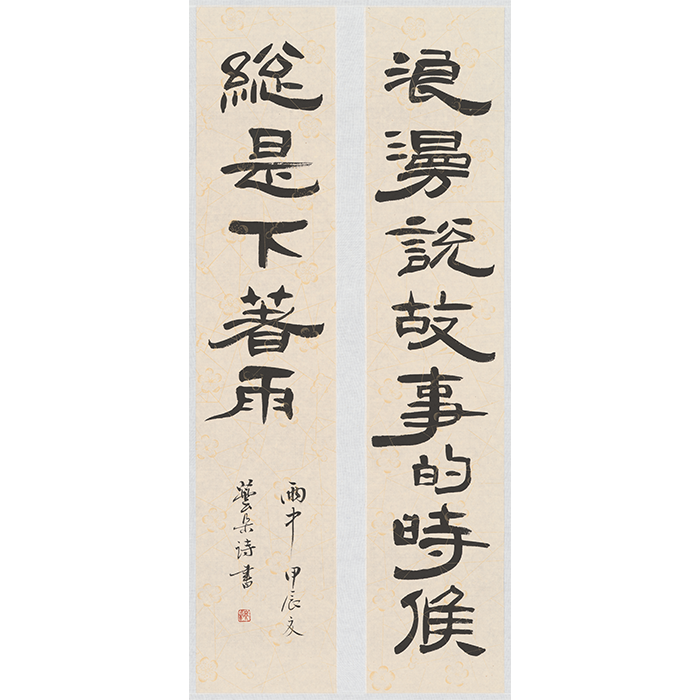 浪漫說故事的時候
總是下著雨
雨中 甲辰文
藝朵詩書